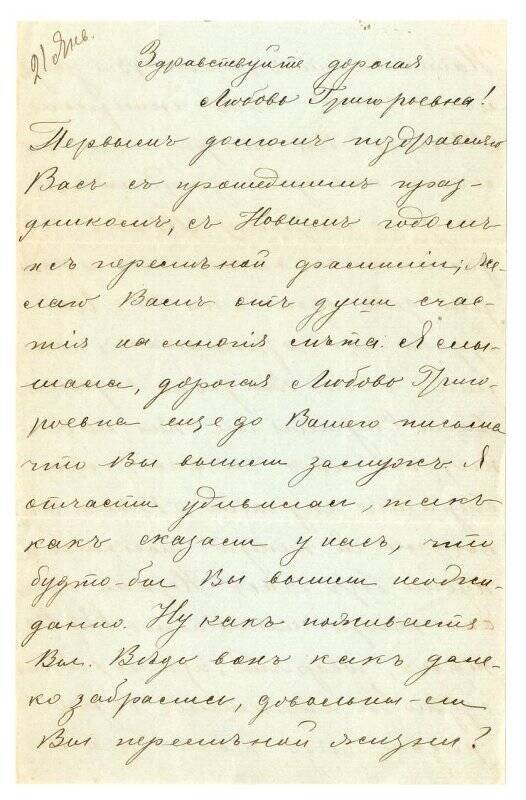 21 Янв.
Здравствуйте дорогая
Любовь Григорьевна!
Первымъ долгомъ поздравляю
Васъ съ прошедшимъ праз-
дникомъ, съ Новымъ годомъ
и съ перемѣной фамиліи; же-
лаю Вамъ отъ души счас-
тія на многія лѣта. Я слы-
шала, дорогая Любовь Григо-
рьевна еще до Вашего письма
что Вы вышли замужъ. Я
отчасти удивилась, такъ
какъ сказали у насъ, что
будто-бы Вы вышли неожи-
данно. Ну какъ поживаете
Вы. Вѣдь вонъ какъ дале-
ко забрались, довольны-ли
Вы перемѣной жизни?